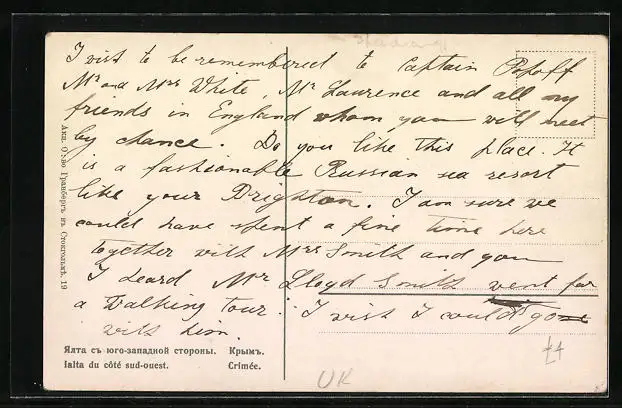 I wish to be remembered to Captain Popoff
Mr and Mrs White, Mr Laurence and all my
friends in England whom you will meet
by chance. Do you like this place. It
is a fashionable Russian sea resort
like your Brighton. I am sure we
could have spent a fine time here
together with Mrs Smith and you
I heard Mr Lloyd Smith went for
a walking tour. I wish I could go
with him.
Акц. О-во Гранбергъ въ Стокгольмѣ. 19
Ялта съ юго-западной стороны. Крымъ.
Ialta du côté sud-ouest. Crimée.
UK
£4